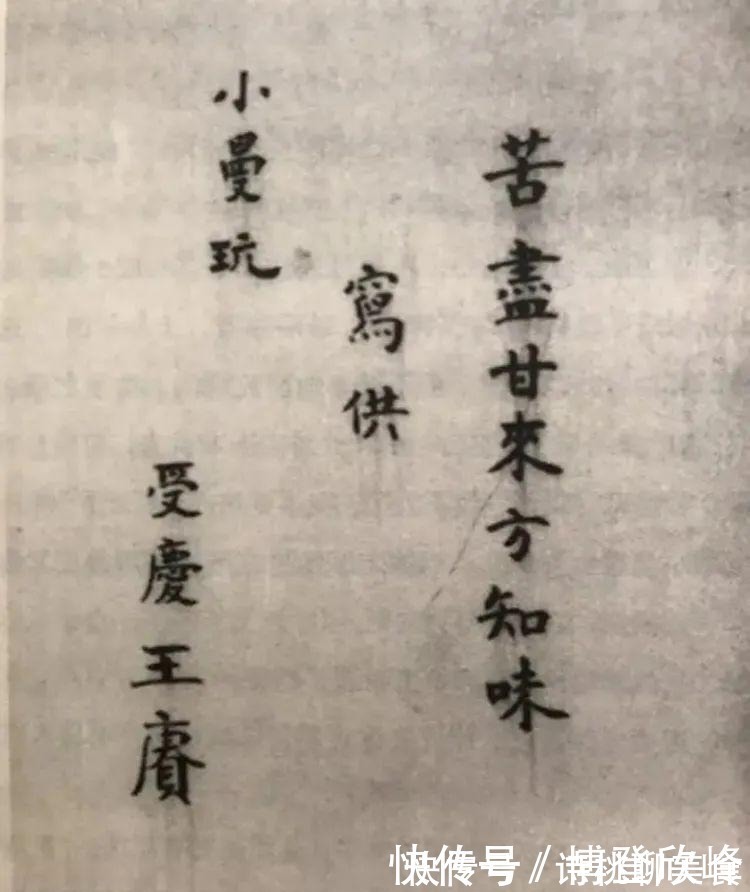 苦盡甘來方知味
寫供
小曼玩
受慶王賡
快传号/